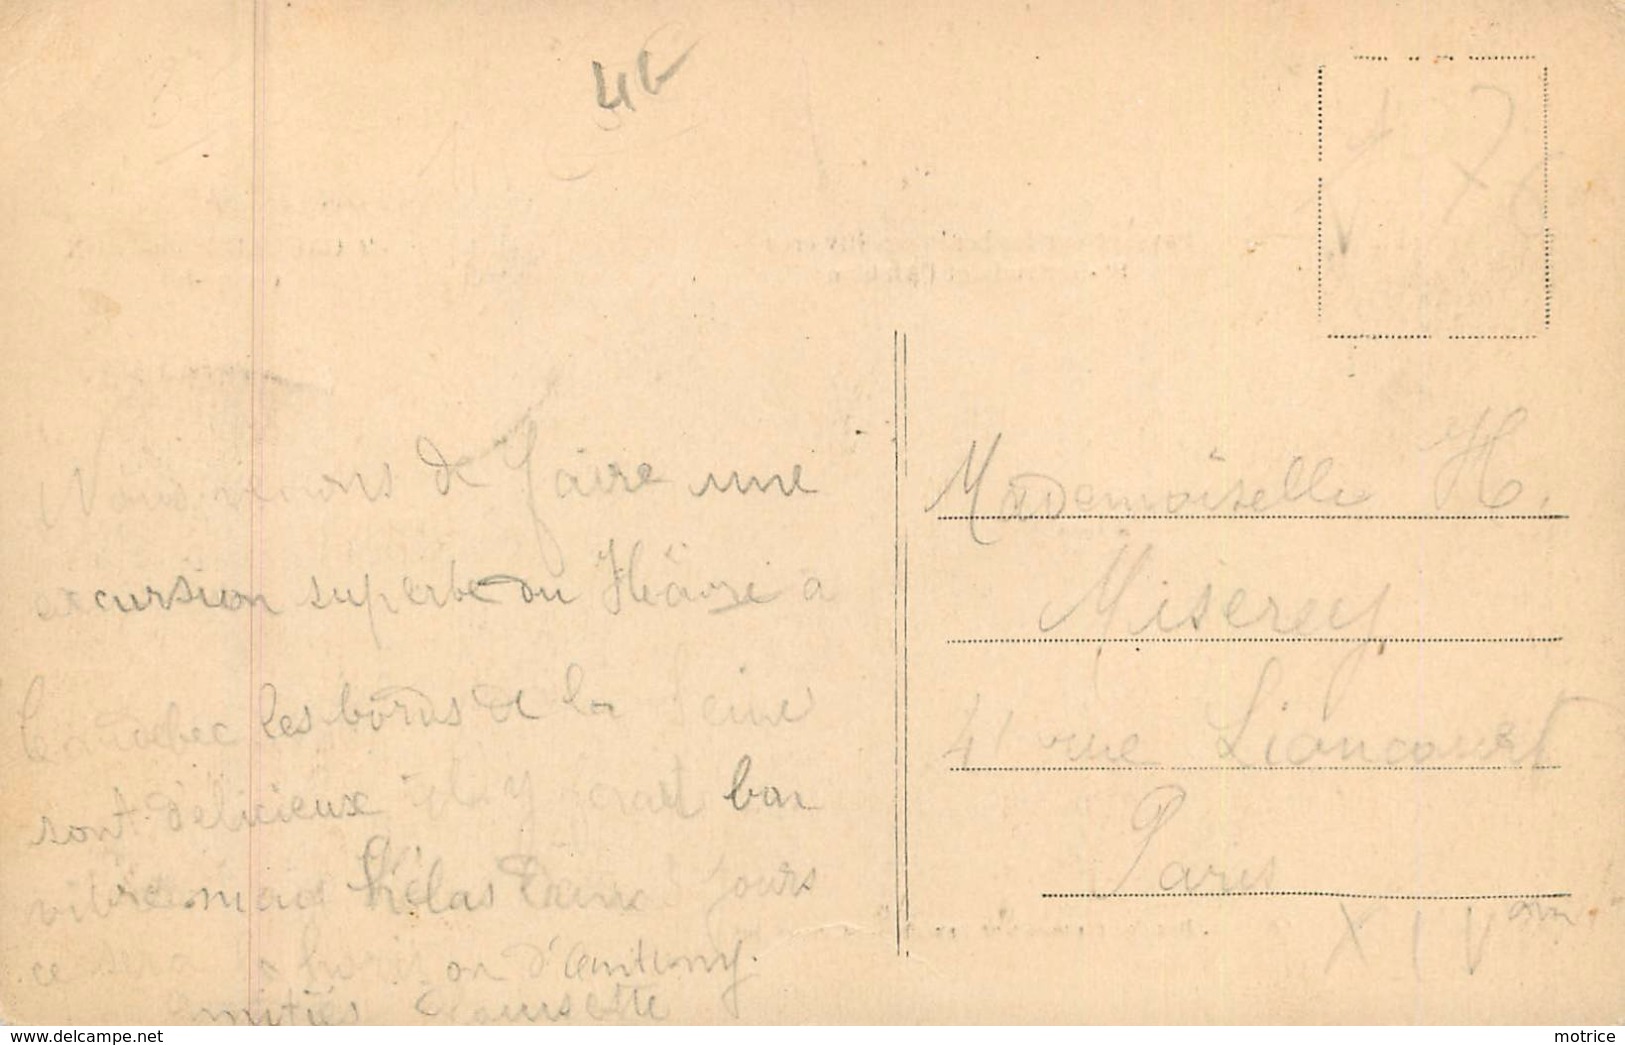 4€
Nous venons de faire une
excursion superbe du Hâvre à
Caudebec les bords de la Seine
sont délicieux il y ferait bon
vivre mais hélas Deux jours
ce sera horizon d'Antony.
Amitiés
Mademoiselle H.
Miserey
41 rue Liancourt
Paris
XIV
motrice
www.delcampe.net